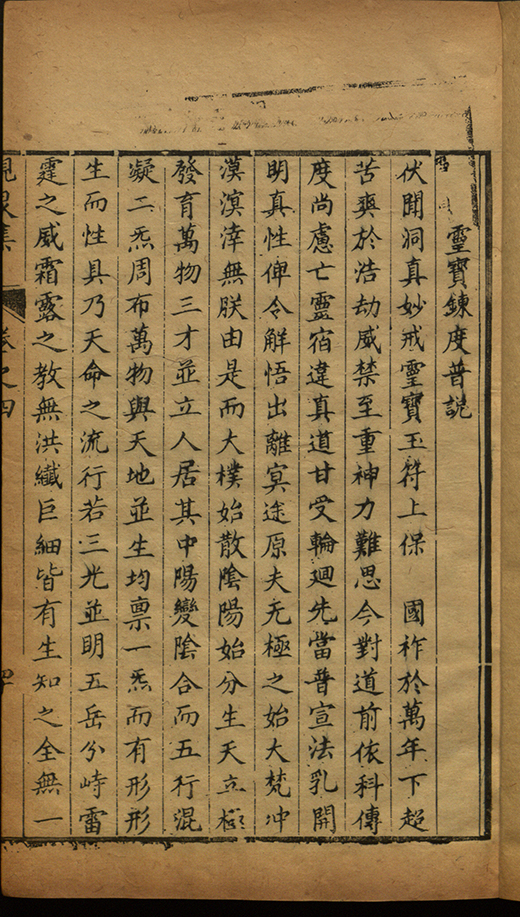 靈寶鍊度普説
伏聞洞真妙戒靈寶玉符上保　國祚於萬年下超
苦爽於浩劫威禁至重神力難思今對道前依科傳
度尚慮亡靈宿違真道甘受輪廻先當普宣法乳開
明真性俾令解悟出離冥途原夫无極之始大梵冲
漠溟涬無朕由是而大樸始散隂陽始分生天立極
發育萬物三才並立人居其中陽變隂合而五行混
凝二炁周布萬物與天地並生均禀一炁而有形形
生而性具乃天命之流行若三光並明五岳分峙雷
霆之威霜露之教無洪纎巨細皆有生知之全無一
峴泉集
卷之四